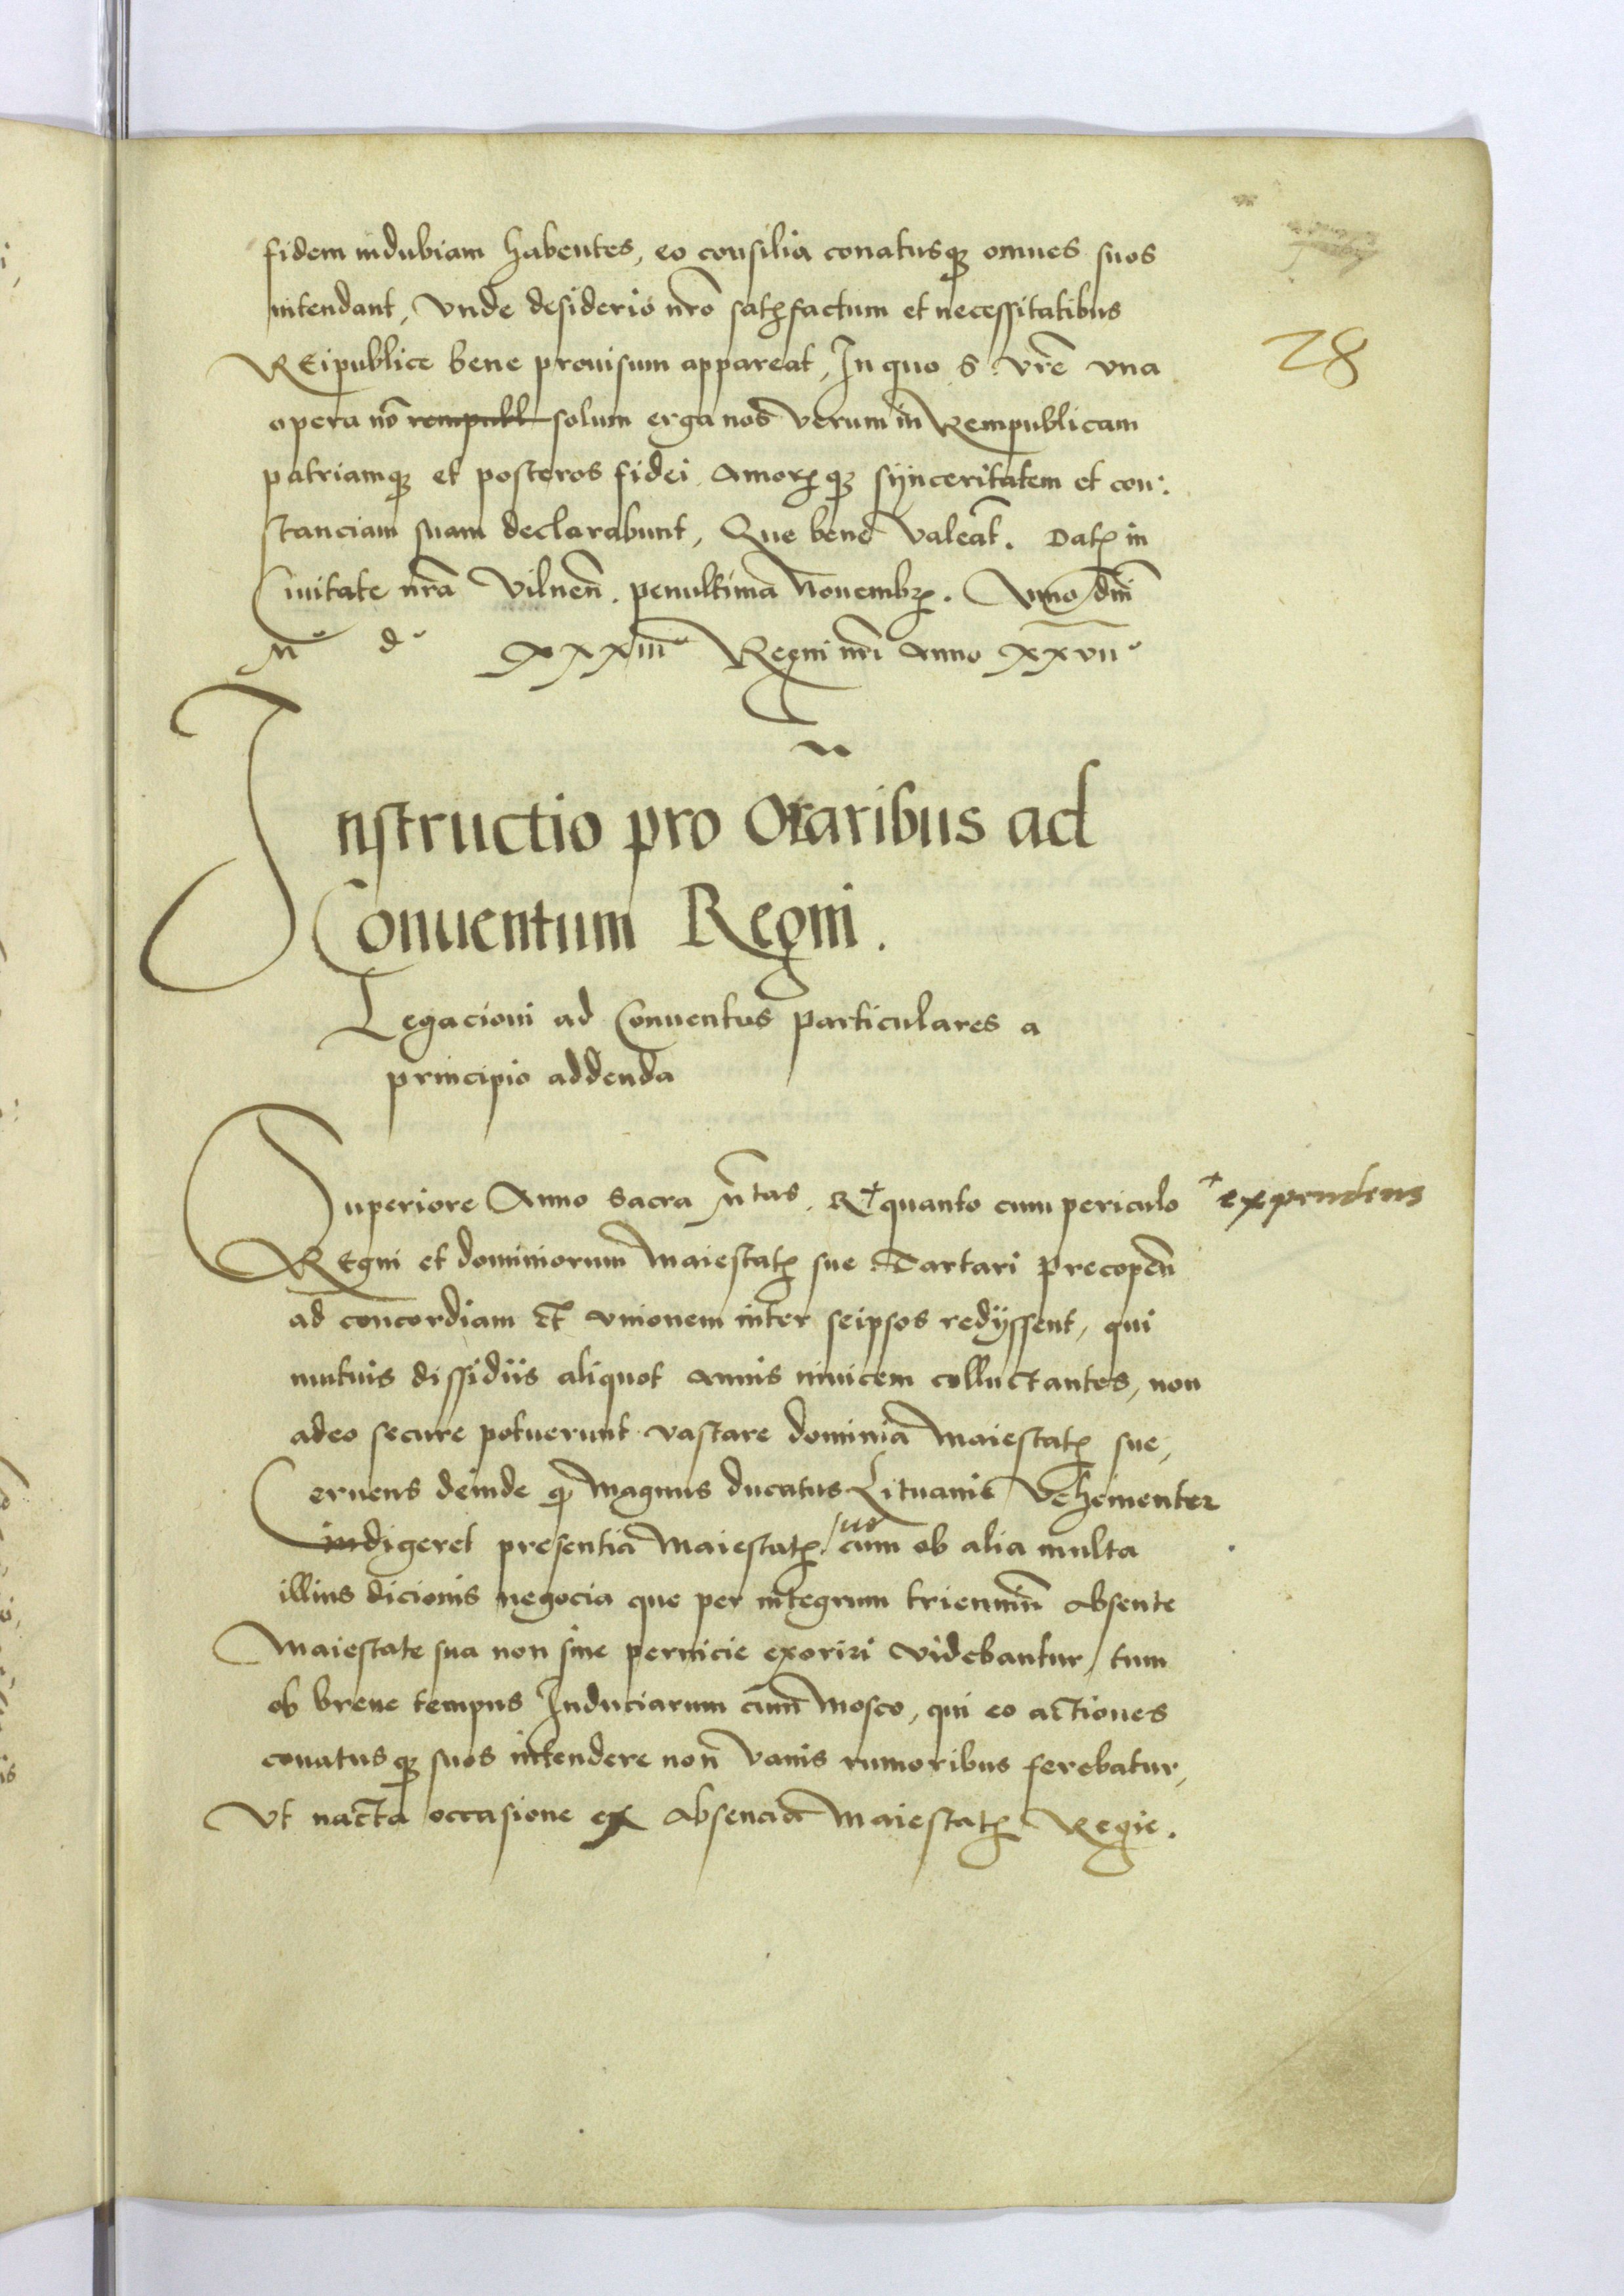 fidem indubiam habentes, eo consilia conatusqꝫ omnes suos
intendant, Vnde desiderio nr̄o satisfactum et necessitatibus
REipublice bene prouisum appareat, In quo S. vr̄e vna
28
opera nō rempubl solum erga nos verum in Rempublicam
patriamqꝫ et posteros fidei Amorisqꝫ synceritatem et con:
stanciam suam declarabunt, Que bene valeāt. Datꝫ in
Ciuitate nr̄a Vilnen̄. penultima Nouembrꝭ. Anno dn̄i
Mº dº XXXIIIº Regni nr̄i Anno XXVIIº
Instructio pro Oraribus ad
Conuentum Regni.
Legacioni ad Conuentus particulares a
principio addenda
Superiore Anno Sacra Mtas. R+ quanto cum periculo + expendens
REgni et dominiorum Maiestatꝭ sue Tartari precopen̄
ad concordiam et vnionem inter seipsos redyssent, qui
mutuis dissidiis aliquot annis inuicem colluctantes, non
adeo secure potuerunt vastare dominia Maiestatꝭ sue,
Cernens deinde qꝫ Magnus ducatus Lituanie Vehementer
indigeret presentia Maiestatꝭ sue cum ob alia multa
illius dicionis negocia que per integrum trienniū absente
Maiestate sua non sine pernicie exoriri videbantur, tum
ob breue tempus Induciarum cum Mosco, qui eo actiones
conatusqꝫ suos intendere non vanis rumoribus ferebatur,
Vt nacta occasione ex absencia Maiestatꝭ Regie.